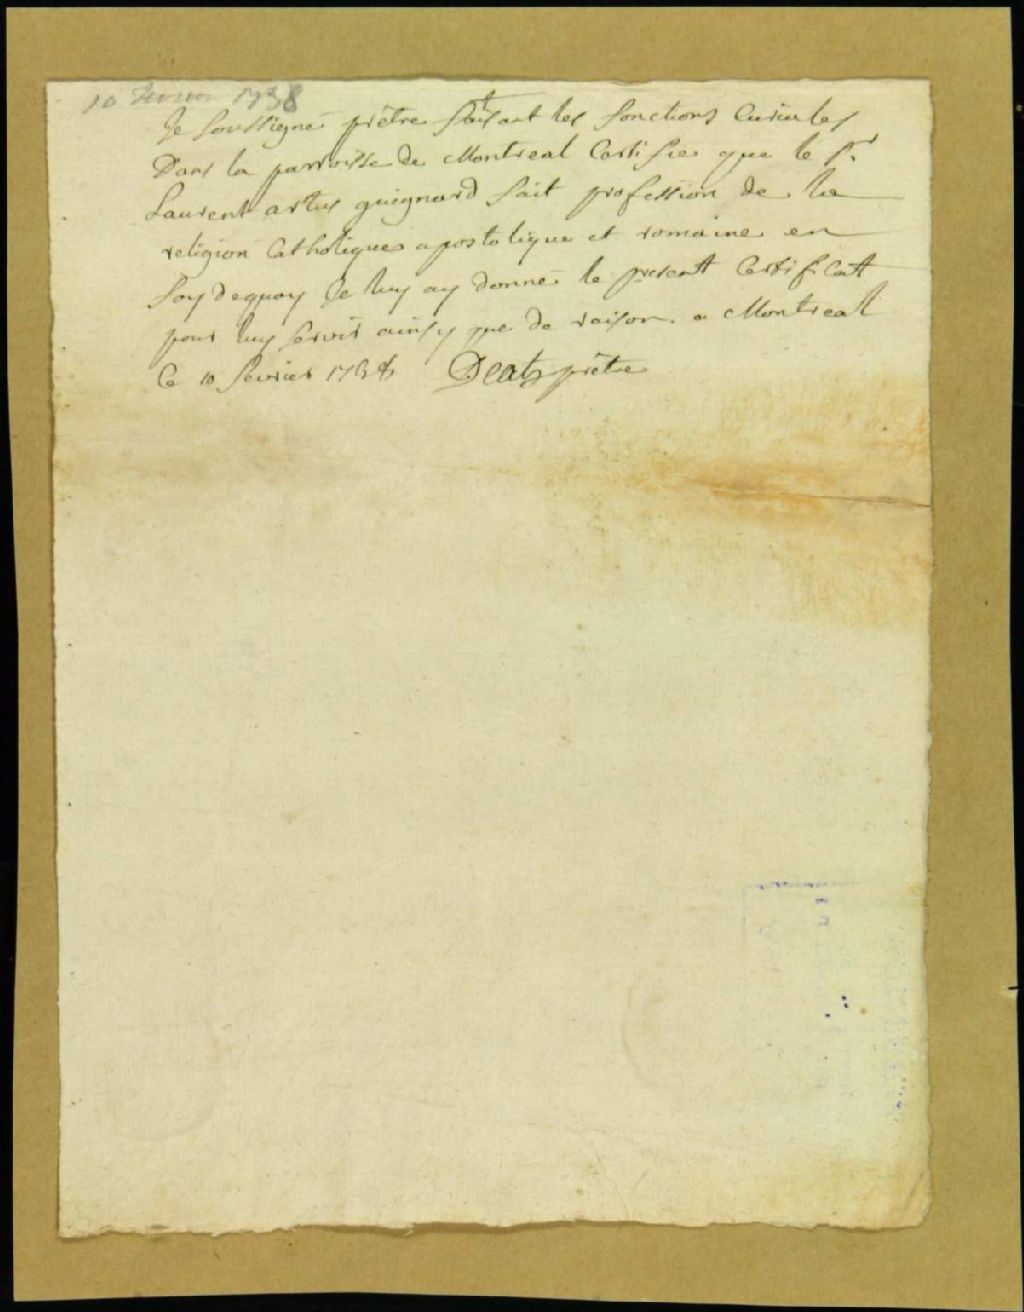 10 Fevrier 1738
Je soussigné prêtre faisant les fonctions curiales
Dans la parroisse de Montreal Certifie que le Sr.
Laurent artus guignard fait profession de la
religion Catholique apostolique et romaine en
foy dequoy Je luy ay donné le present Certificatt
pour luy servir ainsy que de raison. a Montreal
Ce 10 fevrier 1738 Deat prêtre